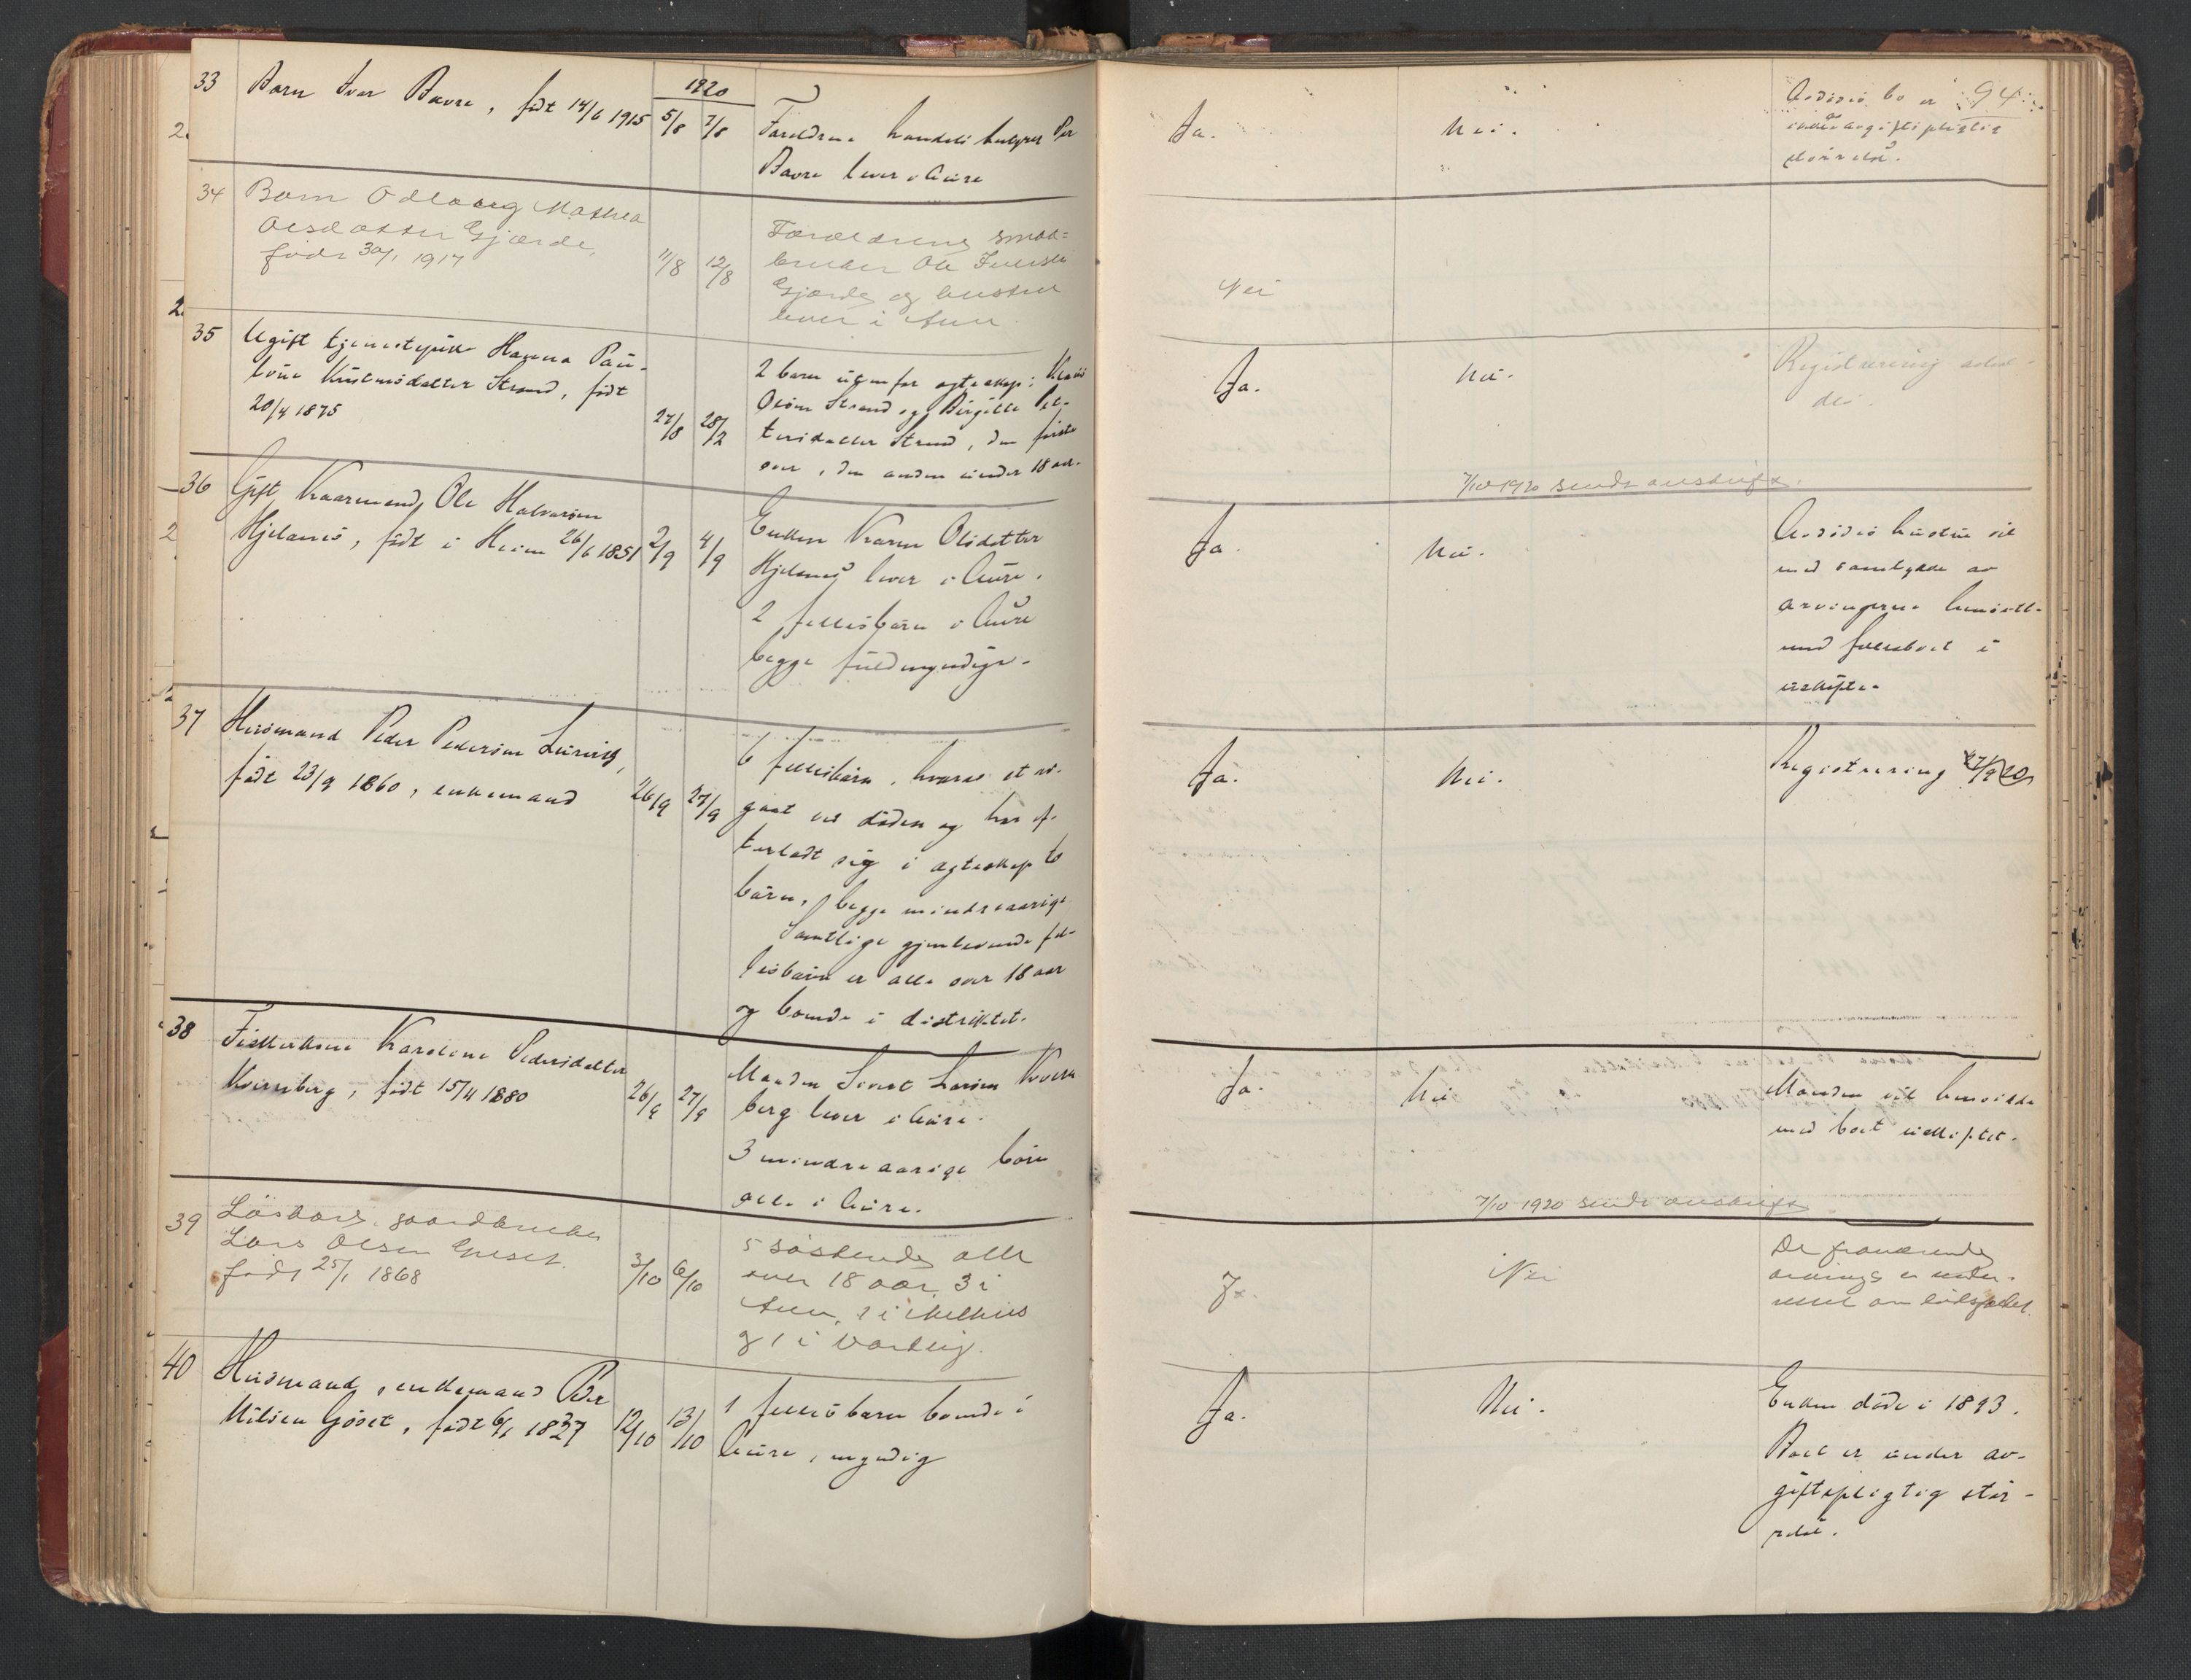 94
1920
33 Barn Ivar Bavre, født 14/6 1915 5/8 7/8
Forældrene handelsbestyrer Per
Bavre lever i Aure
Ja. Nei.
Avdødes bo er
under avgiftspligtig
størrelse.
34 Barn Odlaug Mathea
Olsdatter Gjærde,
født 30/1 1917 11/8 12/8
Forældrene smaa=
bruker Ole Iversen
Gjærde og hustru
lever i Aure.
Nei
35 Ugift tjenestepike Hanna Pau-
line Kristensdatter Strand, født
20/4 1875 27/8 28/2
2 barn utenfor egteskap:
Olsøn Strand og Birgitte Pet-
tersdatter Strand, den første
over, den anden under 18 aar.
Ja. Nei.
Registrering
7/10 1920 sendt avskrift.
36 Gift Kaarmand Ole Halvorsøn
Hjelsnes, født i Heim 26/6 1851 2/9 4/9
Enken Karen Olsdatter
Hjelsnes lever i Aure.
2 fællesbarn i Aure
begge fuldmyndige.
Ja. Nei.
Avdødes hustru vil
med samtykke av
arvingerne hensitte
med fællesboet i
uskifte.
37 Husmand Peder Pedersøn Lurvig,
født 23/9 1860, enkemand 26/9 27/9
6 fællesbarn, hvorav et av-
gaat ved døden og har ef-
terladt sig i egteskap to
barn, begge mindreaarige
Samtlige gjenlevende fæl-
lesbarn er alle over 18 aar
og boende i distriktet.
Ja. Nei.
Registrering 27/9 20
38 Fiskerkone Karoline Pedersdatter
Kvernberg, født 15/11 1880 26/9 27/9
Manden Sivert Larsen Kvern
berg lever i Aure.
3 mindreaarige barn
alle i Aure.
Ja. Nei
Manden vil hensidde
med boet uskiftet.
7/10 1920 sendt avskrift
39 Løskarl, gaardbruker
Lars Olsen Gjeset.
født 25/1 1868 3/10 6/10
5 søskende alle
over 18 aar, 3 i
Aure, 1 i Melhus
og 1 i Vartdig.
Ja. Nei
De fraværende
arvinger er under-
rettet om dødsfaldet.
40 Husmand, enkemand Per
Nilsen Gjøset, født 6/1 1837 12/10 13/10
1 fællesbarn boende i
Aure, myndig
Ja. Nei.
Enken døde i 1893.
Boet er under av-
giftspligtig stør-
relse.